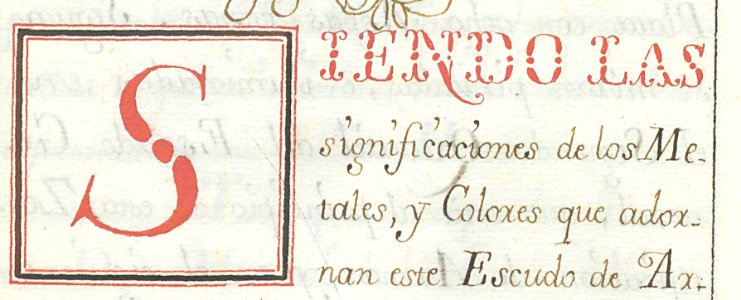 SIENDO LAS
significaciones de los Me-
tales, y Colores que ador-
nan este Escudo de Ar-